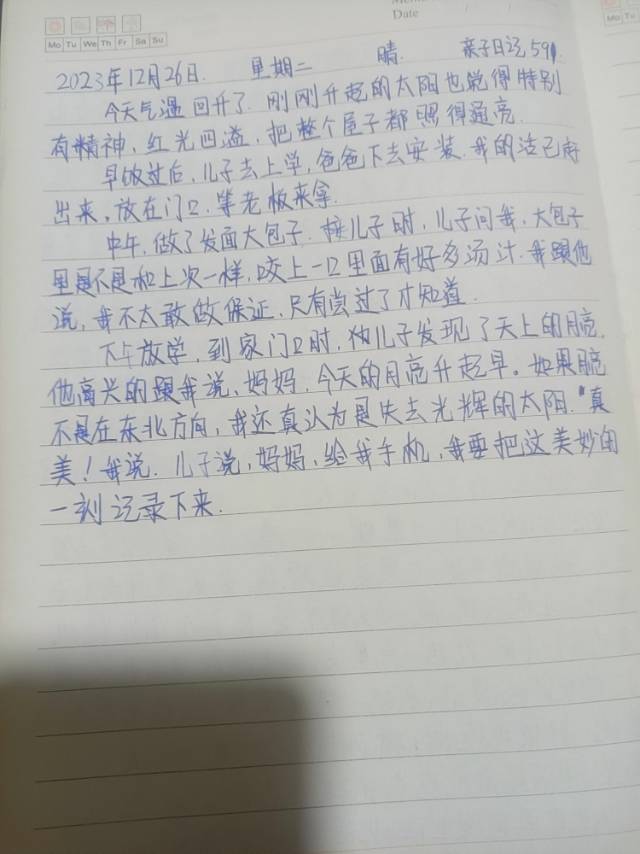 Date
Mo Tu We Th Fr Sa Su
Mo Tu
2023年12月26日. 星期二 晴. 亲子日记591
今天气温回升了.刚刚升起的太阳也锐得特别
有精神,红光四溢,把整个屋子都照得通亮.
早饭过后,儿子去上学,爸爸下去安装.我的活已
出来,放在门口.等老板来拿.
中午,做了发面大包子.接儿子时,儿子问我,大包子
里是不是和上次一样,咬上一口里面有好多汤汁.我跟他
说,我不太敢做保证,只有尝过了才知道.
下午放学,到家门口时,儿子发现了天上的月亮.
他高兴的跟我说,妈妈,今天的月亮升起早。如果
不是在东北方向,我还真认为是失去光辉的太阳."真
美!我说.儿子说,妈妈,给我手机,我要把这美妙的
一刻记录下来.